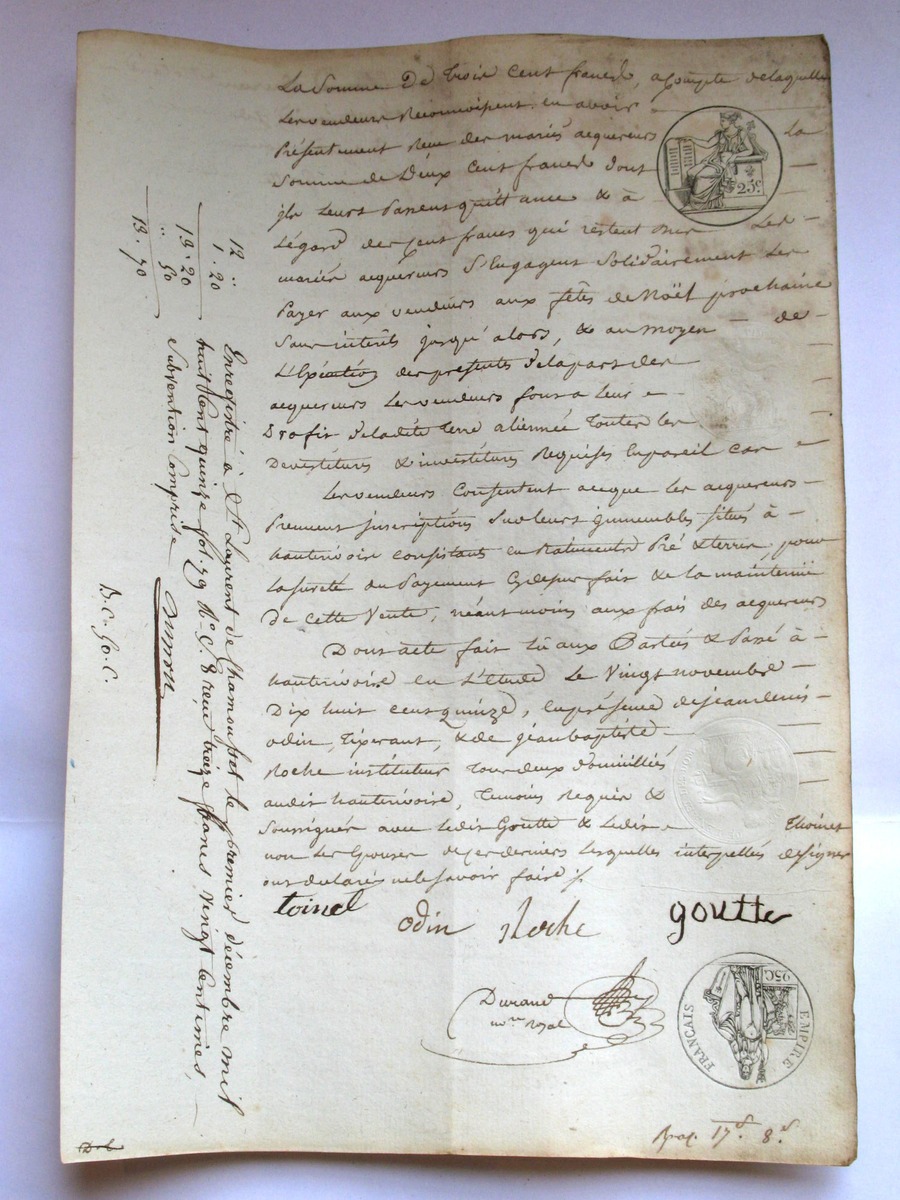 La Somme De Trois Cent francs, acompte delaquelle
Les vendeurs Reconnoissent en avoir
Présentement Reçu des mariés acquereurs la
Somme de Deux Cent francs dont
jls Leurs Passent quittance & à
L'égard des Cent francs qui restent Les
mariés acquereurs S'Engagent Solidairement Les
Payer aux vendeurs aux fêtes de Noël prochaine
Sans intérêts jusqu'alors, & au moyen de
L'Exécution des présentes delapart des
acquereurs Les vendeurs font a Leur
Profit deladite Terre aliennée Toutes les
Devestitures & investitures Requises En pareil cas
Les vendeurs Consentent aceque les acquereurs
Prennent jnscriptions Sur leurs jmmeubles situés à
hauterivoire consistants en Batiments Pré & terres pour
La sureté du Payement Cydessus fait & de la maintenüe
De cette Vente, néantmoins aux frais des acquereurs
Dont acte fait Lu aux Parties & Passé à
hauterivoire en L'étude Le Vingt novembre
Dix huit Cent quinze, En présence de jean denis
odin, Tixerant, & de jean baptiste
Roche instituteur Tous deux domiciliés
audit hauterivoire, Temoins Requis &
Soussignés avec Ledit Goutte & Ledit Thoinet
non Les Epouses de ces derniers lesquelles interpellés designer
ont declarés nele savoir faire ./.
toinet
odin Roche goutte
Durand
nore royal
25c.
EMPIRE FRANCAIS
25C.
12 "
1 . 20
13 . 20
" 50
13 . 70
Enregistré à St Laurent de Chamousset le premier décembre mil
huit Cent quinze fol. 79 Ro C. 8 reçu treize francs vingt Centimes,
Subvention Comprise
D. C. 50. C.
17 8